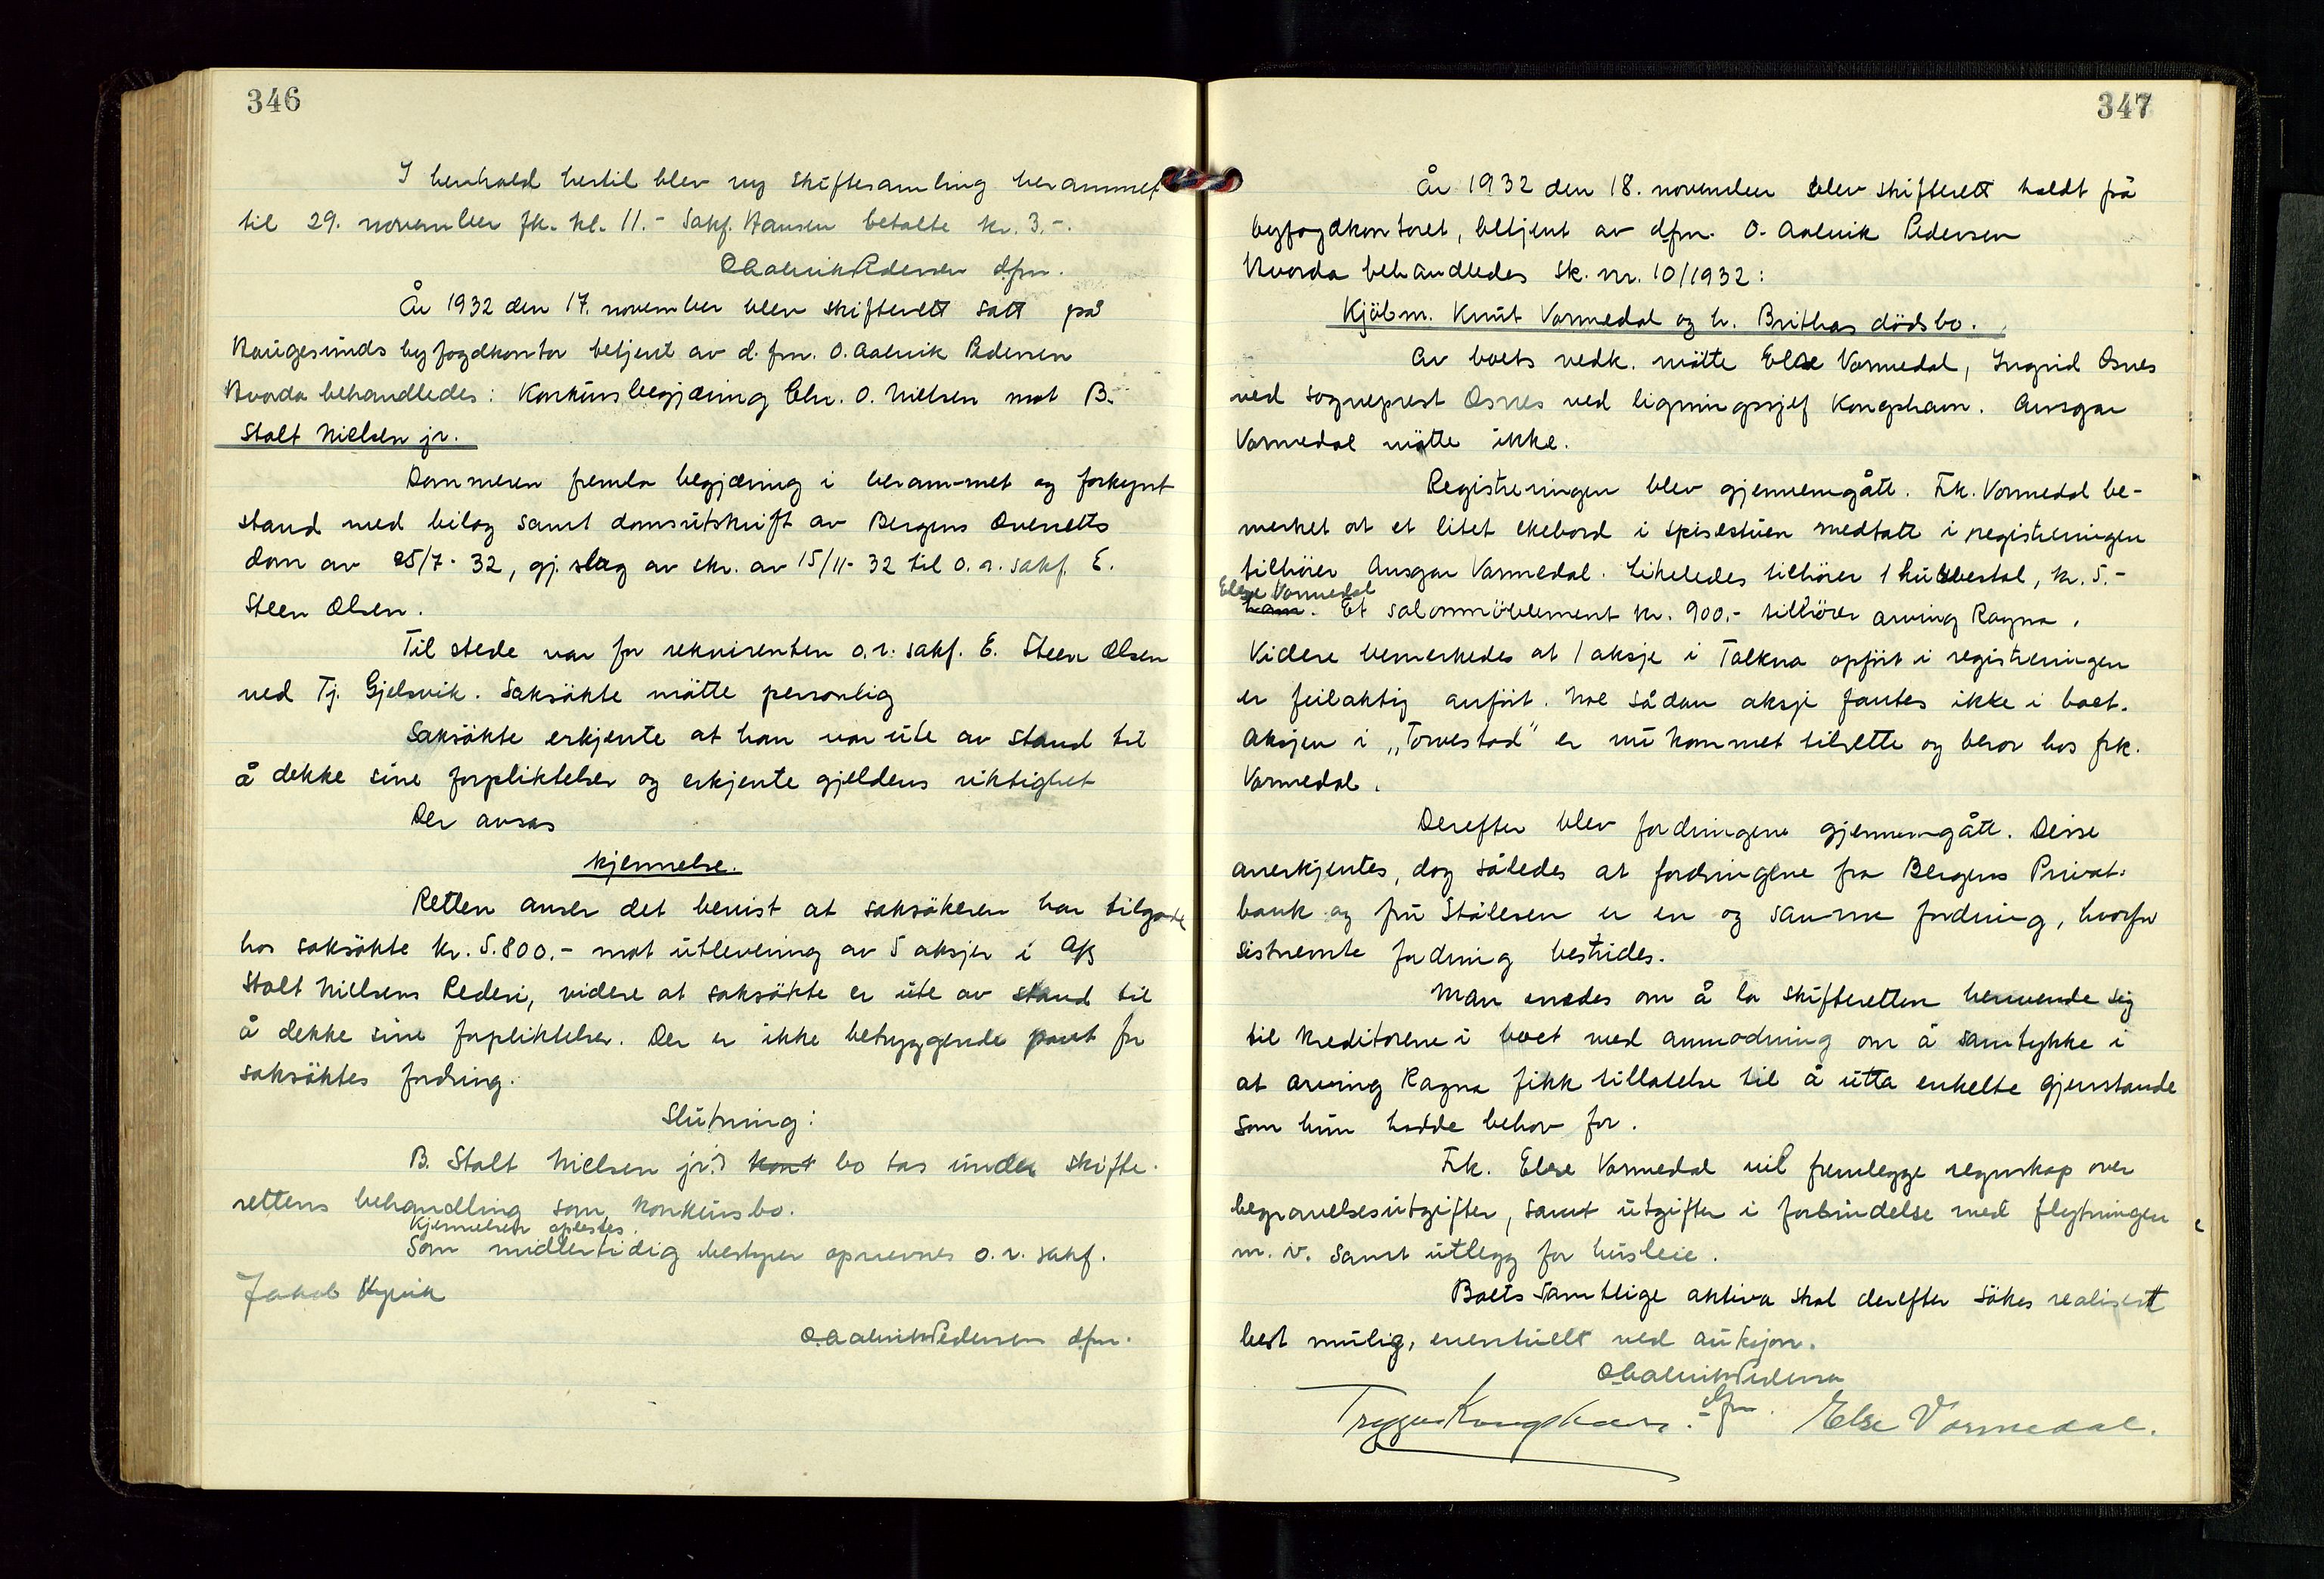 346
I henhold hertil blev ny skiftesamling berammet
til 29. november fk. kl. 11.- Sakf. Hansen betalte kr. 3.-.
O Aalvik Pedersen dfm.
År 1932 den 17. november blev skifterett satt på
Haugesunds byfogdkontor betjent av d. fm. O. Aalvik Pedersen
Hvorda behandledes: Konkursbegjæring Chr. O. Nielsen mot B.
Stolt Nielsen jr.
Dommeren fremla begjæring i beram-met og forkynt
stand med bilag samt domsutskrift av Bergens Overretts
dom av 25/7-32, gj.slag av skr. av 15/11-32 til o.r.sakf. E.
Steen Olsen.
Til stede var for rekvirenten o.r. sakf. E. Steen Olsen
ved Tj. Gjelsvik. Saksökte mötte personlig
Saksökte erkjente at han var ute av stand til
å dekke sine forpliktelser og erkjente gjeldens riktighet
Der avsas
kjennelse.
Retten anser det bevist at saksökeren har tilgode
hos saksökte kr. 5.800.- mot utlevering av 5 aksjer i A/S
Stolt Nielsens Rederi, videre at saksökte er ute av stand til
å dekke sine forpliktelser. Der er ikke betryggende pant for
saksöktes fordring.
Slutning:
B. Stolt Nielsen jr.s konk bo tas under skifte-
rettens behandling som konkursbo.
Kjennelsen oplestes.
Som midlertidig bestyrer opnevnes o.r. sakf.
Jakob Kyvik
O Aalvik Pedersen dfm.
347
År 1932 den 18. november blev skifterett holdt på
byfogdkontoret, betjent av dfm. O. Aalvik Pedersen
Hvorda behandledes sk. nr. 10/1932:
Kjöbm. Knut Vormedal og h. Brithas dödsbo.
Av boets vedk. mötte Else Vormedal, Ingrid Osnes
ved sogneprest Osnes ved ligningssjef Kongshavn. Ansgar
Vormedal mötte ikke.
Registreringen blev gjennemgått. Frk. Vormedal be-
merket at et litet ekebord i spisestuen medtatt i registreringen
tilhörer Ansgar Vormedal. Likeledes tilhörer 1 kurvestol, kr. 5.-
Else Vormedal
ham. Et salonmöblement kr. 900.- tilhörer arving Ragna.
Videre bemerkedes at 1 aksje i Talkna opfört i registreringen
er feilaktig anfört. Noe sådan aksje fantes ikke i boet.
Aksjen i „Torvestad" er nu kommet tilrette og beror hos frk.
Vormedal.
Derefter blev fordringene gjennemgått. Disse
anerkjentes, dog således at fordringene fra Bergens Privat-
bank og fru Stålesen er en og sam-me fordring, hvorfor
sistnevnte fordring bestrides.
Man enedes om å la skifteretten henvende sig
til kreditorene i boet med anmodning om å samtykke i
at arving Ragna fikk tillatelse til å utta enkelte gjenstande
som hun hadde behov for.
Frk. Else Vormedal vil fremlegge regnskap over
begravelsesutgifter, samt utgifter i forbindelse med flytningen
m. v. samt utlegg for husleie.
Boets samtlige aktiva skal derefter sökes realisert
best mulig, eventuelt ved auksjon.
O Aalvik Pedersen
dfm.
Trygve Kongshavn. Else Vormedal.